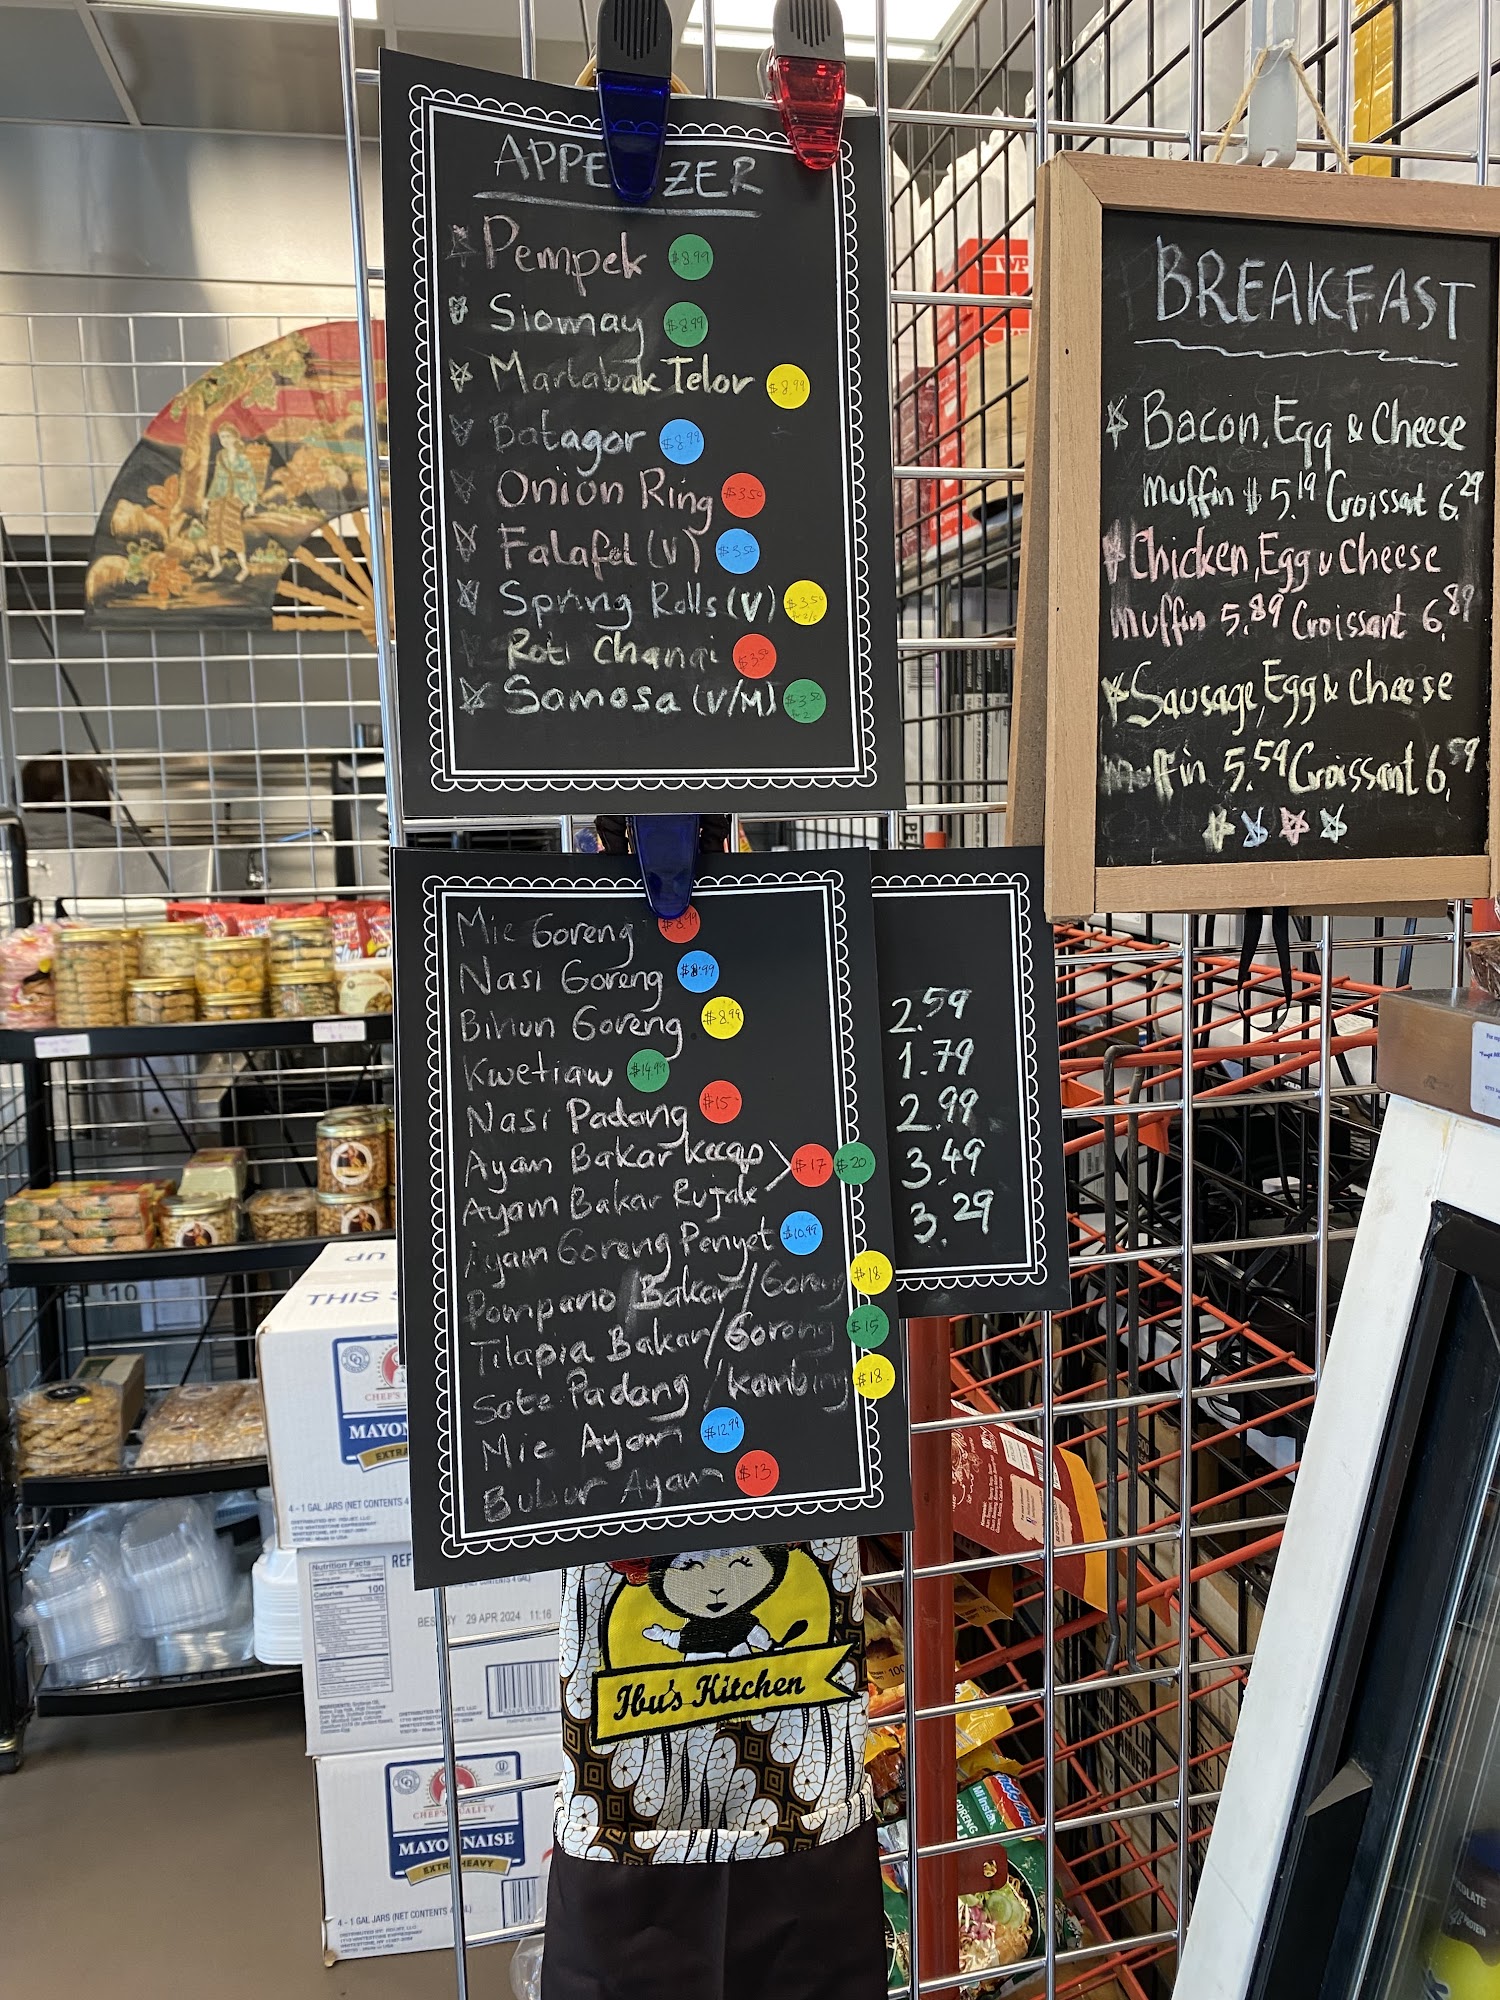 APPE ZER
Pempek $8.99
Siomay $8.99
Martabak Telor $8.99
Batagor $8.99
Onion Ring $3.50
Falafel (V) $3.50
Spring Rolls (V) $3.50
Roti Chanai $3.50
Samosa (V/M) $3.50
Mie Goreng $8.99
Nasi Goreng $8.99
Bihun Goreng $8.99
Kwetiaw $14.99
Nasi Padang $15-
Ayam Bakar kecap
Ayam Bakar Rujak
$17 $20
Ayam Goreng Penyet $10.99
Pompano Bakar/Goreng $18
Tilapia Bakar/Goreng $15
Sate Padang/kambing $18
Mie Ayam $12.99
Bubur Ayam $13
2.59
1.79
2.99
3.49
3.29
BREAKFAST
Bacon, Egg & Cheese
muffin $5.19 Croissant 6.29
Chicken, Egg & Cheese
muffin 5.89 Croissant 6.89
Sausage, Egg & Cheese
muffin 5.59 Croissant 6.59
Ibu's Kitchen
UP
THIS
MAYON
EXTRA
4 - 1 GAL JARS (NET CONTENTS 4
Nutrition Facts
Calories 100
REF
BES BY 29 APR 2024 11:16
CHEF'S QUALITY
MAYONNAISE
EXTRA HEAVY
4 - 1 GAL JARS (NET CONTENTS
Mi Instan
GORENG